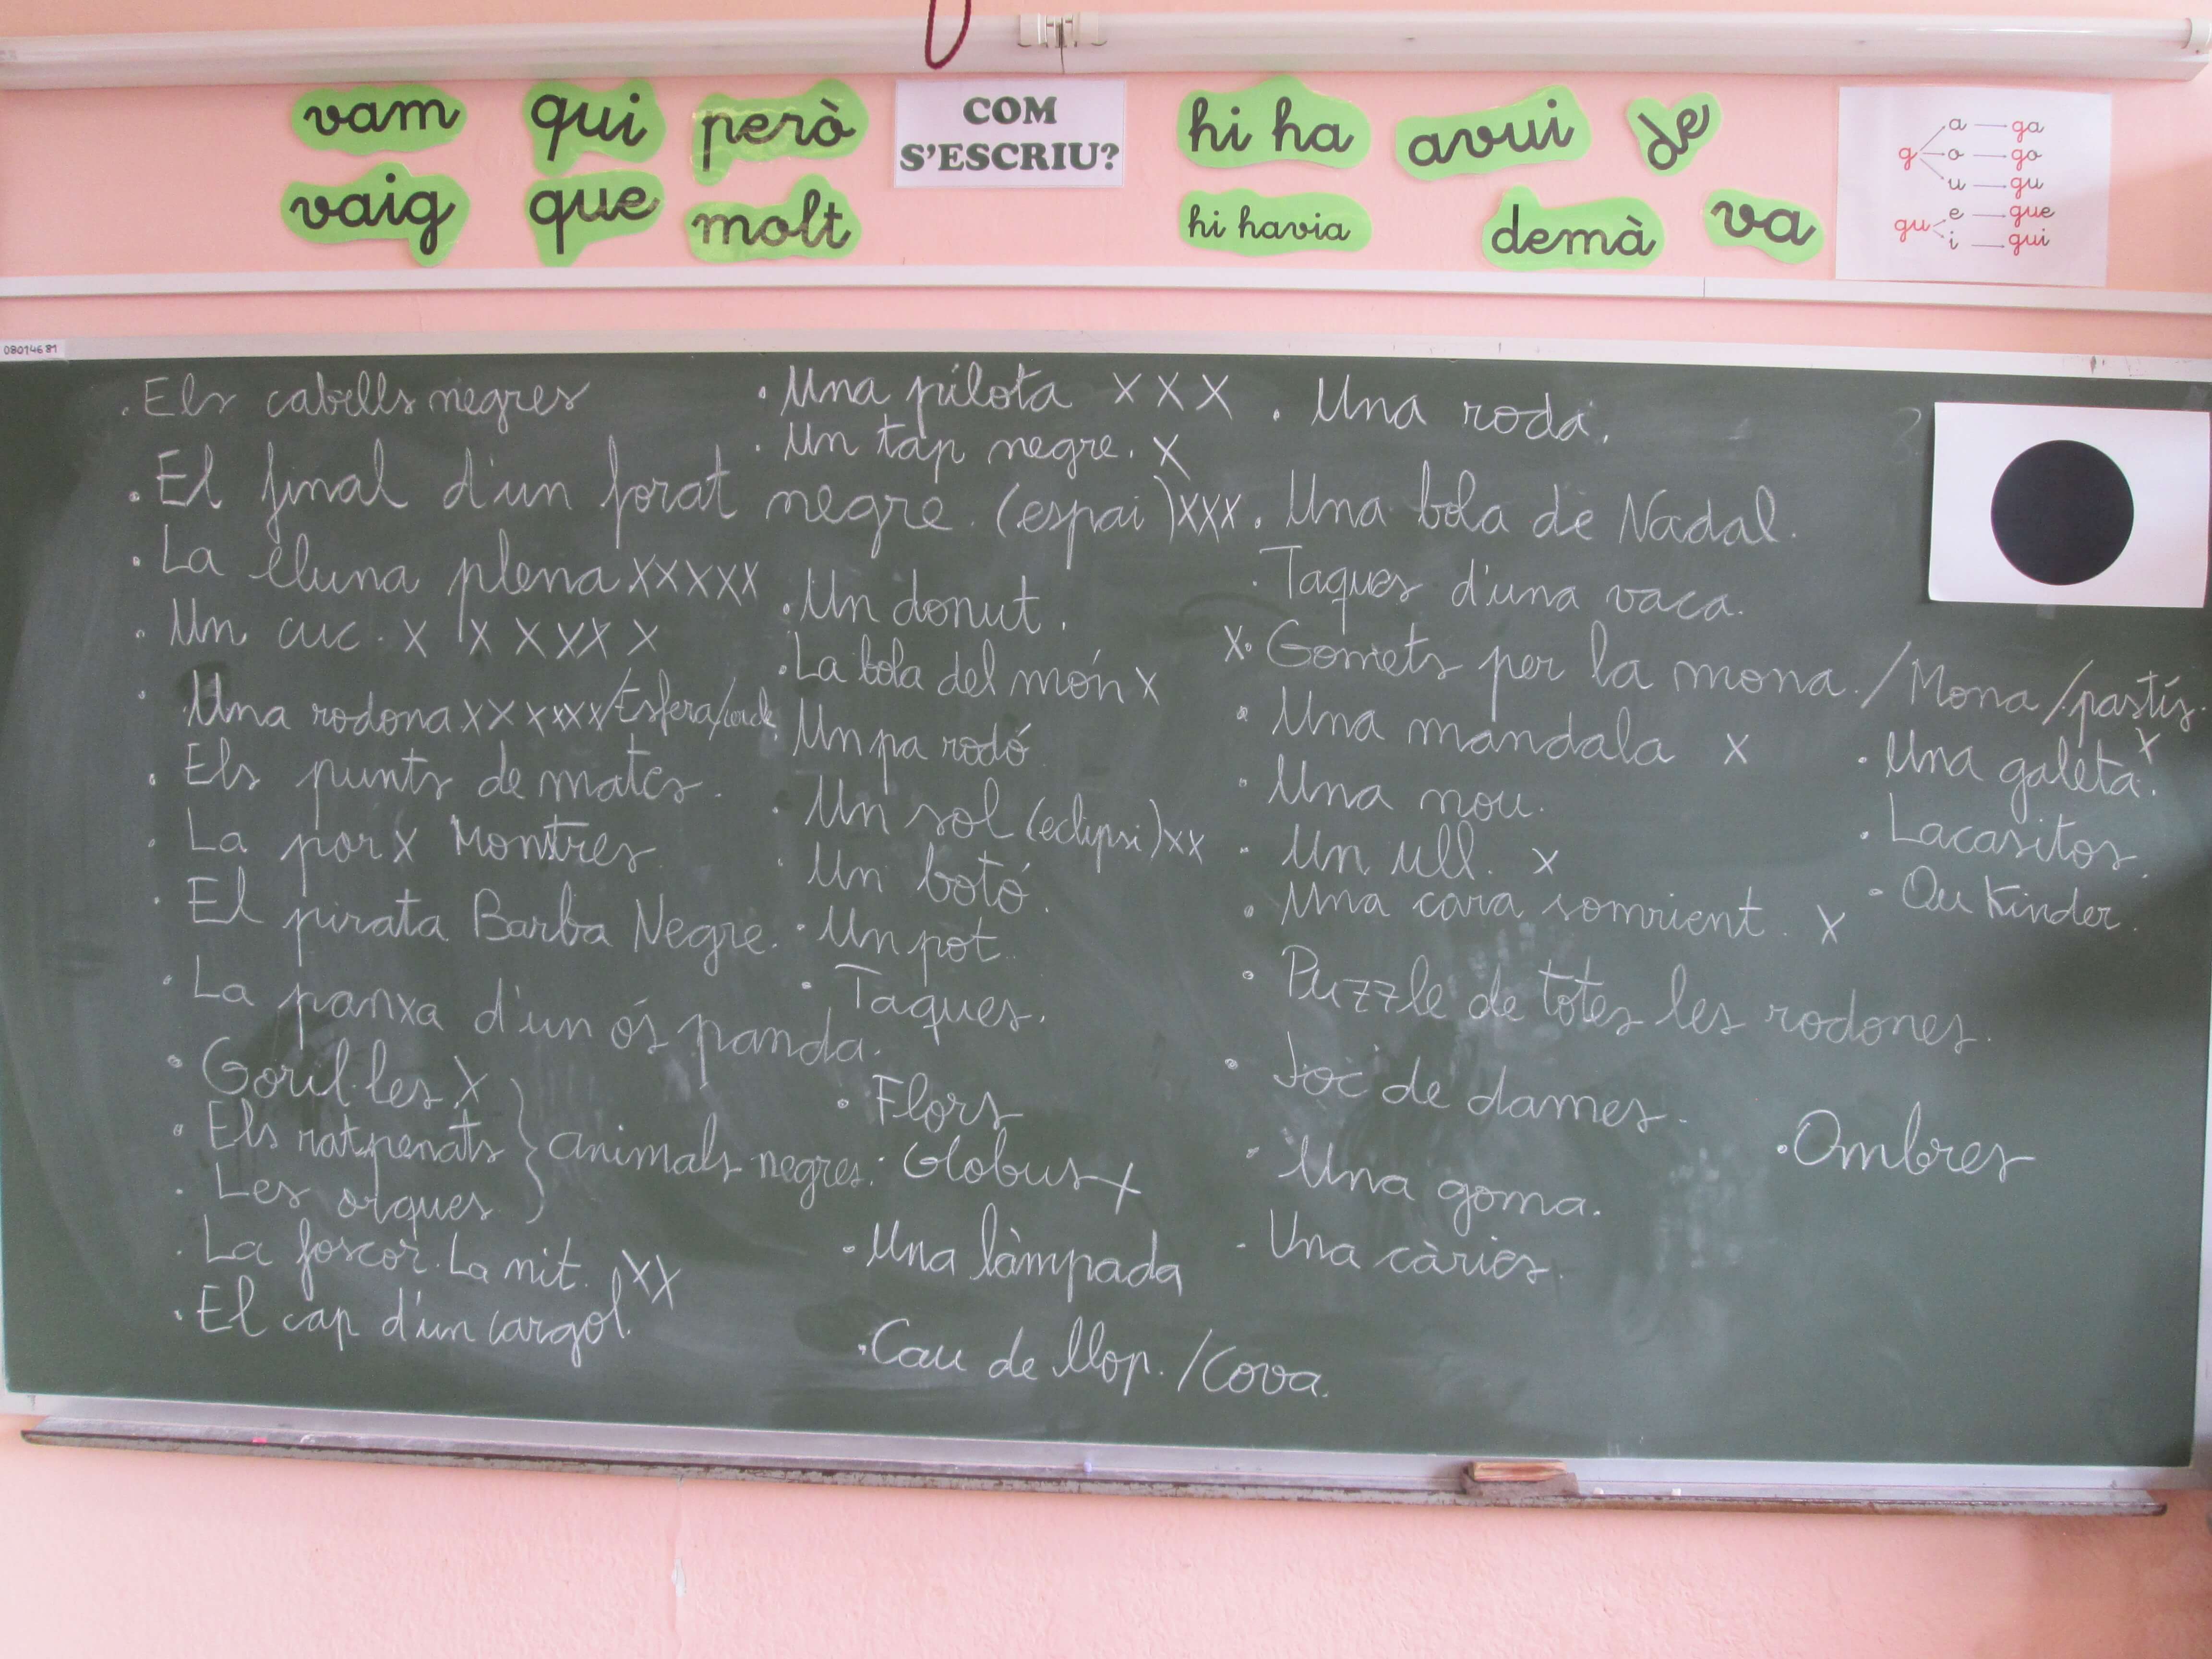 vam qui però COM S'ESCRIU? hi ha avui de
vaig que molt hi havia demà va
g a ga
o go
u gu
gu e gue
i gui
08014681
. Els cabells negres
. El final d'un forat negre. (espai) XXX
. La lluna plena XXXXX
. Un cuc. X X X X X X
. Una rodona XX XXXX/Esfera/
. Els punts de mates.
. La por X Monstres.
. El pirata Barba Negre.
. La panxa d'un ós panda.
. Goril·les X
. Els ratpenats } animals negres.
. Les orques
. La foscor. La nit. XX
. El cap d'un cargol.
. Una pilota X X X
. Un tap negre. X
. Un donut.
. La bola del món X
. Un pa rodó
. Un sol (eclipsi) XX
. Un botó.
. Un pot.
. Taques.
. Flors
. Globus X
. Una làmpada
. Cau de llop. / Cova.
. Una roda.
. Una bola de Nadal.
. Taques d'una vaca.
X. Gomets per la mona. / Mona / pastís.
. Una mandala X
. Una nou.
. Un ull. X
. Una cara somrient. X
. Puzzle de totes les rodones.
. Joc de dames.
. Una goma.
. Una càries.
. Una galeta. X
. Lacasitos.
. Ou Kinder.
. Ombres